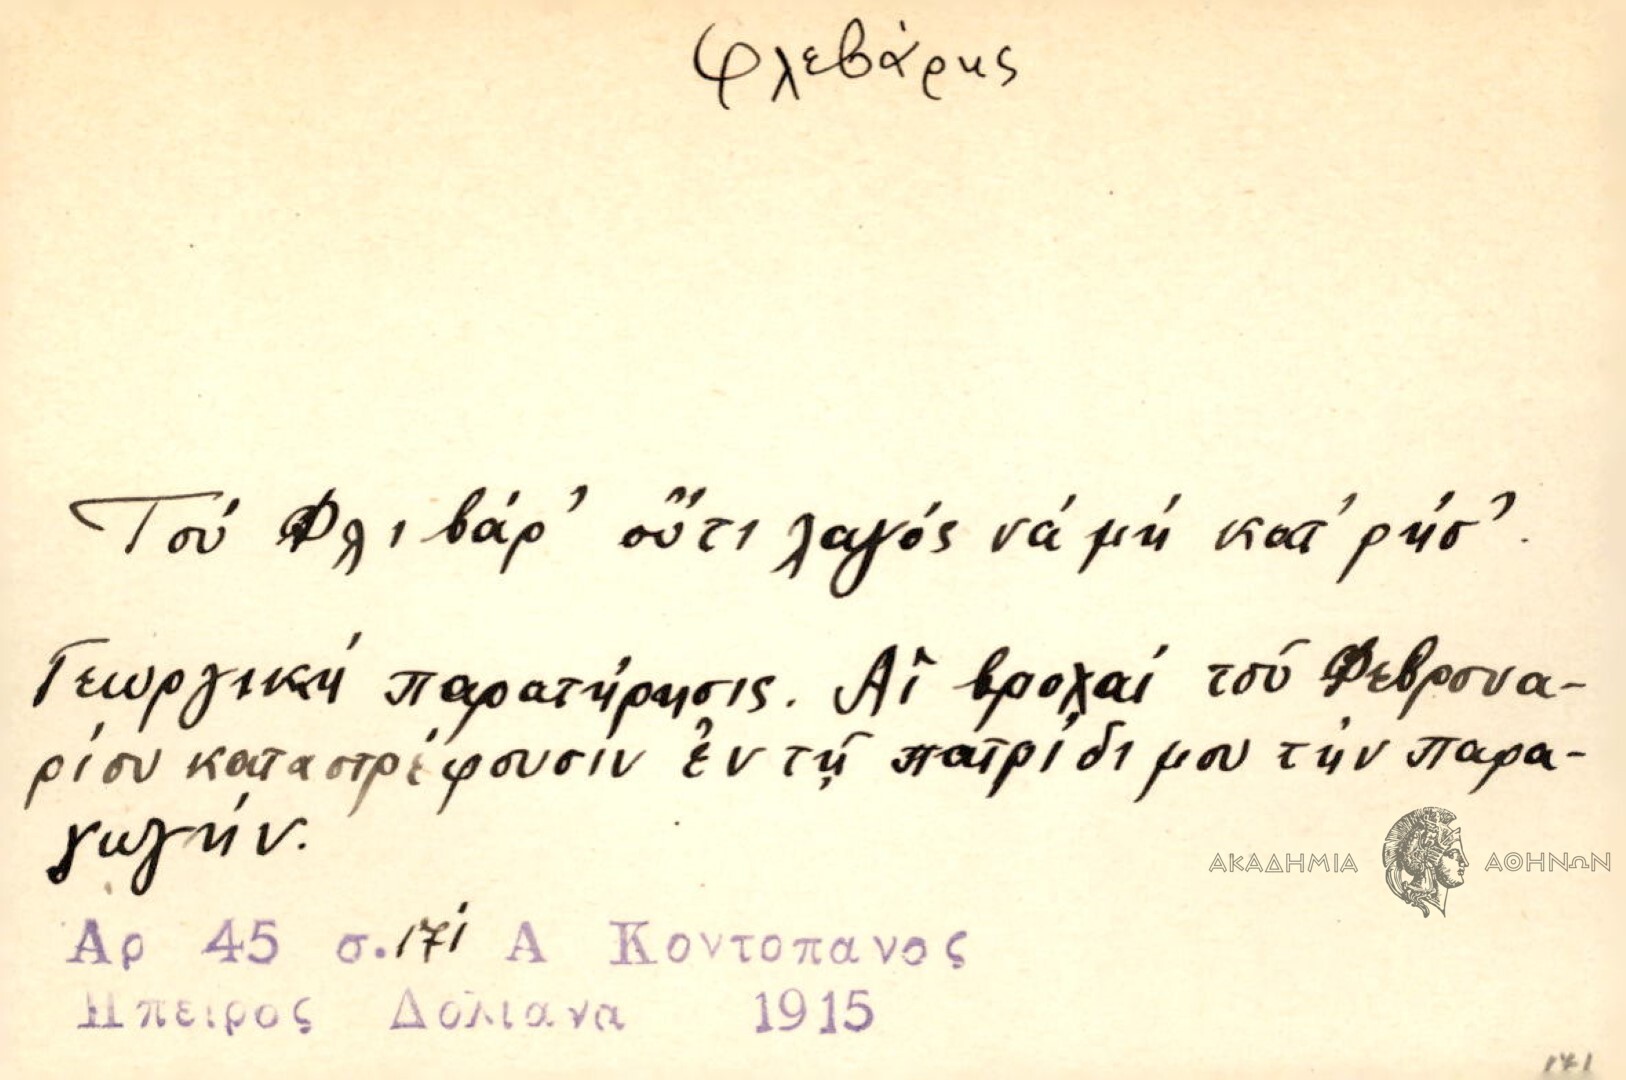 Φλεβάρης
Τού Φλιβάρ' οὔτι λαγός νά μή κατ'ρήσ'.
Γεωργική παρατήρησις. Αἱ βροχαί τοῦ Φεβρουα-
ρίου καταστρέφουσιν ἐν τῇ πατρίδι μου τήν παρα-
γωγήν.
ΑΚΑΔΗΜΙΑ ΑΘΗΝΩΝ
Αρ 45 σ. 171 Α Κοντοπανος
Ηπειρος Δολιανα 1915
171